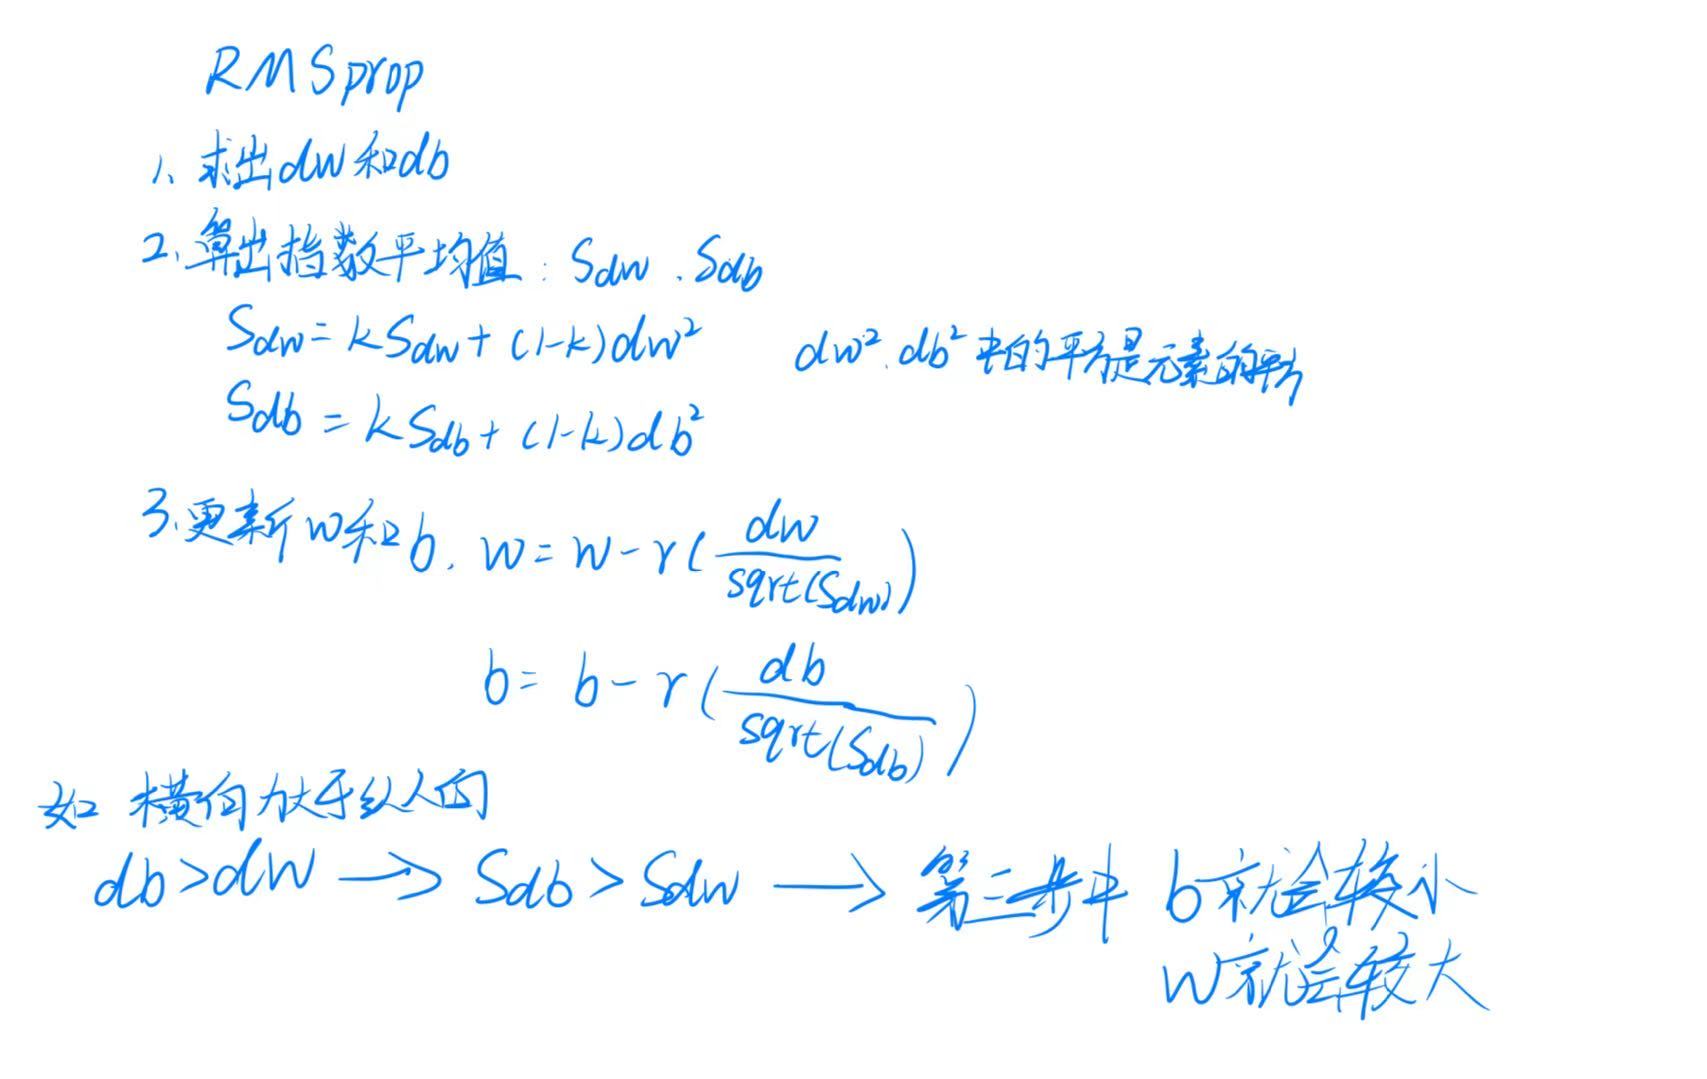 RMSprop
1、求出dw和db
2、算出指数平均值:Sdw、Sdb
Sdw=kSdw+(1-k)dw²
dw²、db²中的平方是元素的平方
Sdb=kSdb+(1-k)db²
3、更新w和b, w=w-r(dw/sqrt(Sdw))
b=b-r(db/sqrt(Sdb))
如 横向大于纵向
db>dw → Sdb>Sdw → 第三步中 b就会较小
w就会较大